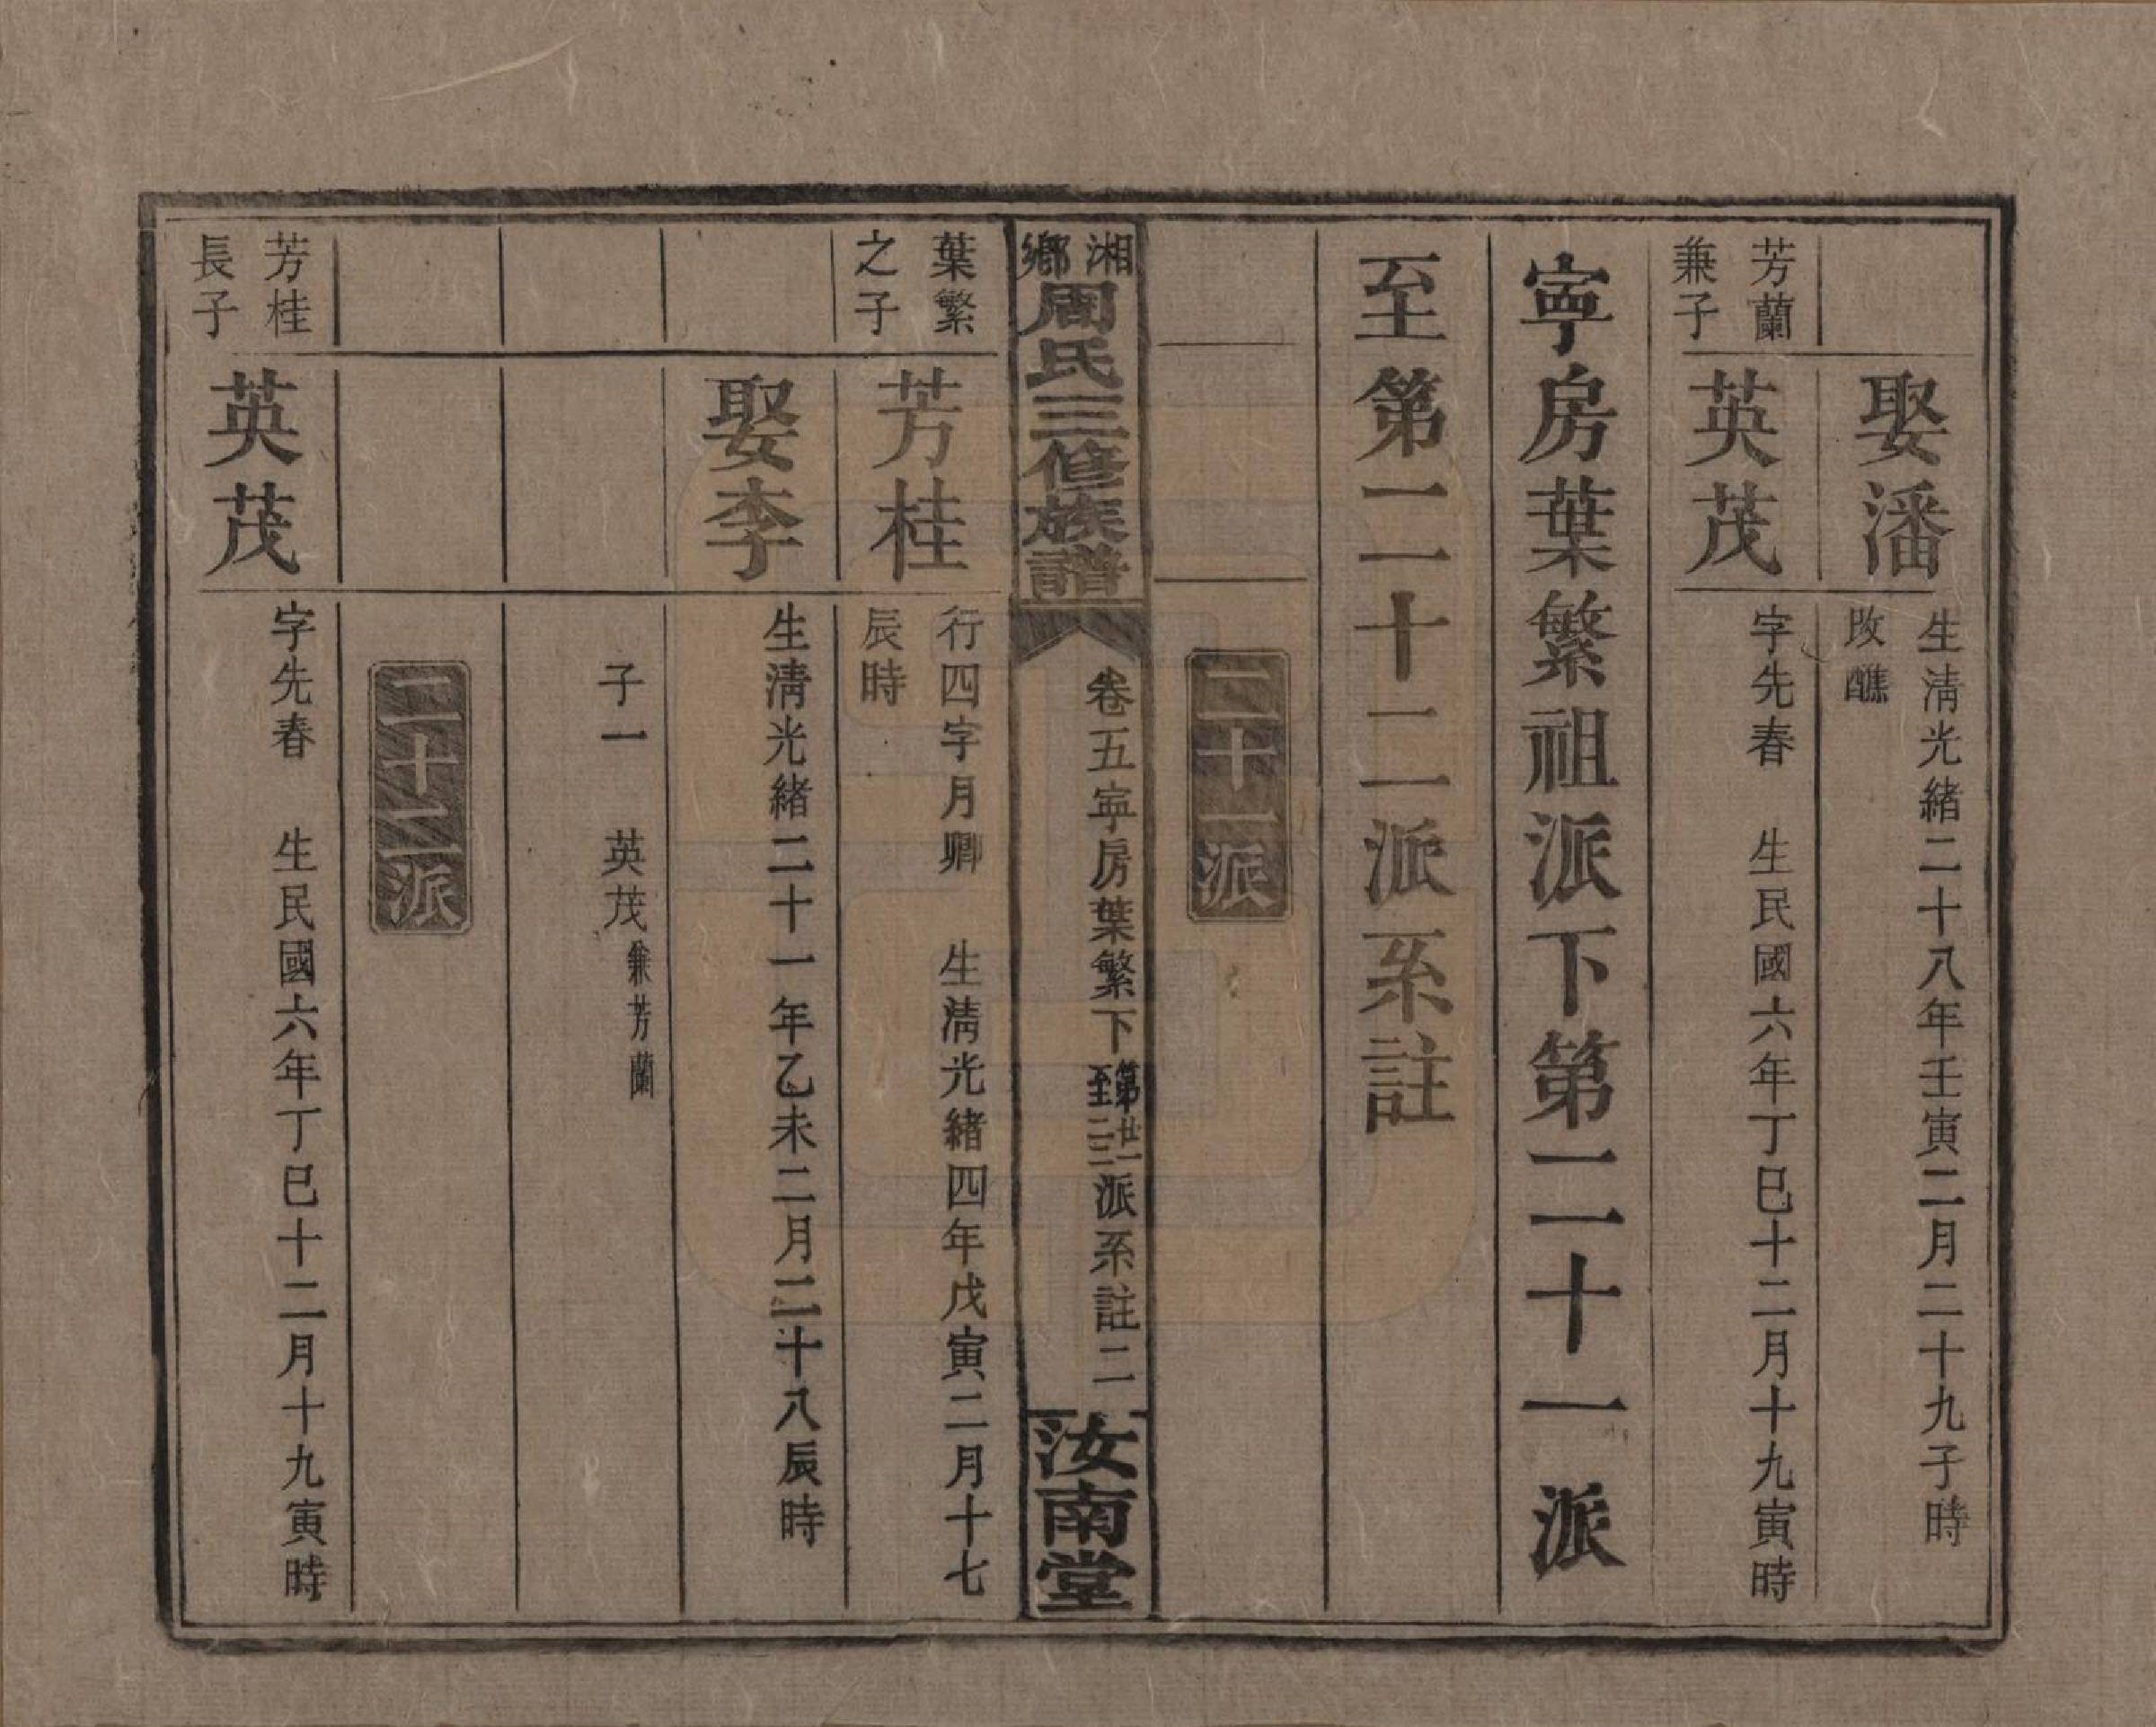 娶潘
生淸光緖二十八年壬寅二月二十九子時
改醮
芳蘭
兼子
英茂
字先春　生民國六年丁巳十二月十九寅時
寧房葉繁祖派下第二十一派
至第二十二派系註
二十一派
湘鄉
周氏三修族譜
卷五寧房葉繁下第廿一至二三派系註二
汝南堂
葉繁
之子
芳桂
行四字月卿　生淸光緖四年戊寅二月十七
辰時
娶李
生淸光緖二十一年乙未二月二十八辰時
子一　英茂兼芳蘭
二十二派
芳桂
長子
英茂
字先春　生民國六年丁巳十二月十九寅時